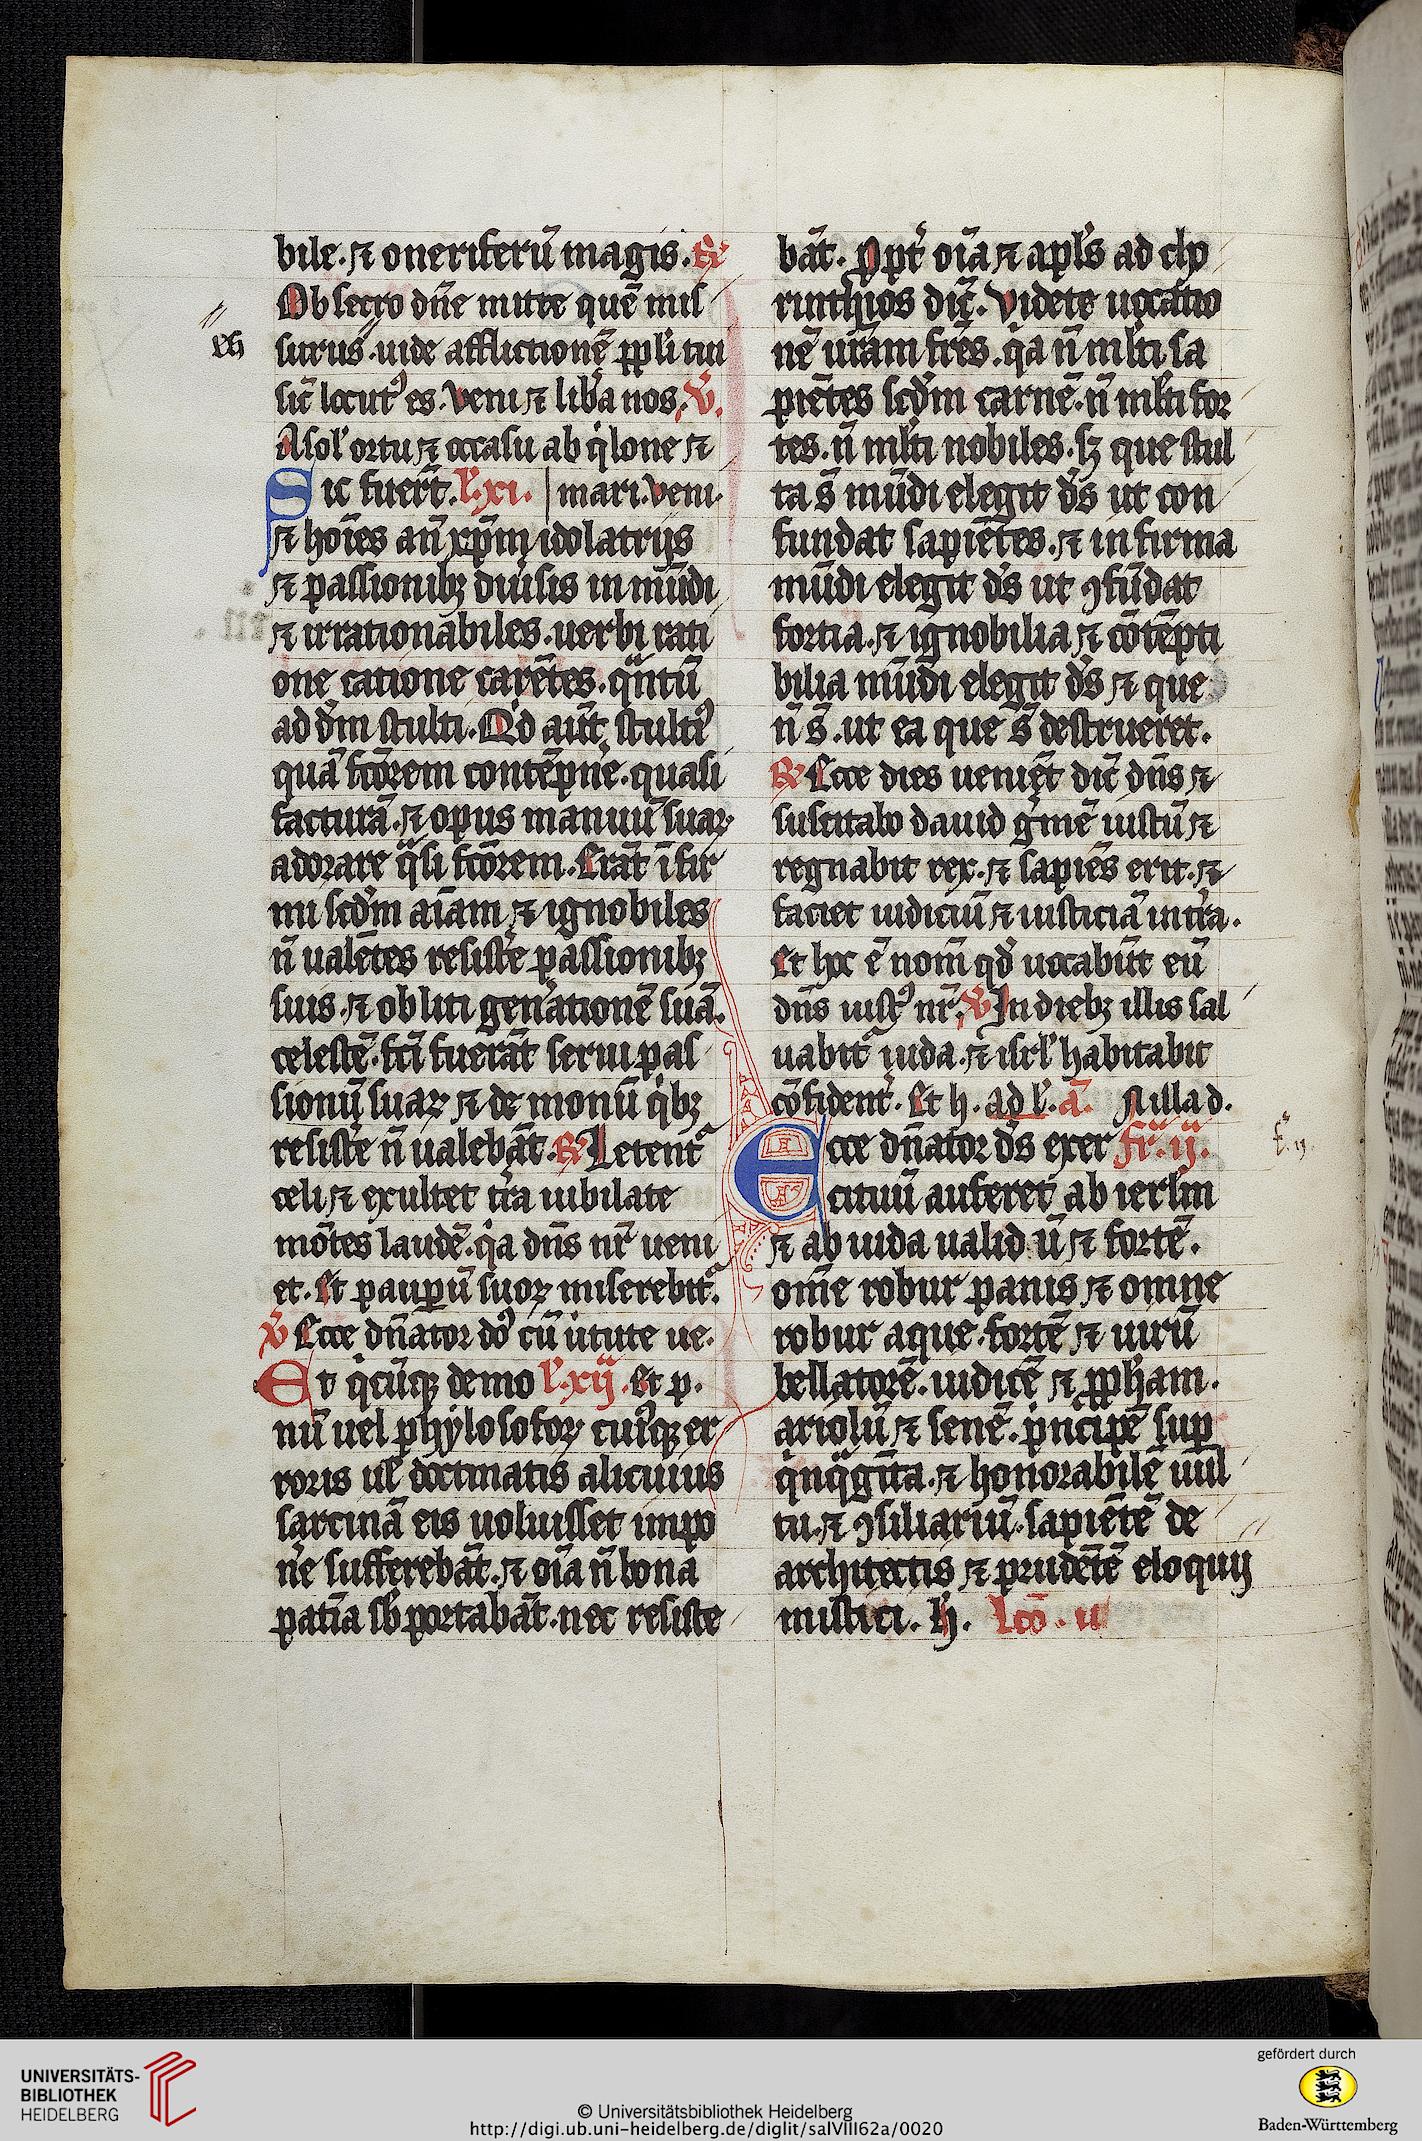 bile. ⁊ oneriferū magis. R͞
Obsecro dn̄e mitte quē mis
eh
surus. uide afflictionē ppl̄i tui
sic̄ locutꝰ es. Veni ⁊ lib̄a nos. V̄.
A sol̓ ortu ⁊ occasu ab q̓lone ⁊
Sic fuer̄t. l̓. xi. | mari. veni.
⁊ hoīes an̄ xp̄m ydolatrijs
⁊ passionibꝫ diuīsis in mūdi
⁊ irrationabiles. uerbi rati
one catione carētes. qⁿtū
ad dm̄ stulti. Qd̓ aūt stultiꝰ
quā fc̄orem contēpn̓e. quasi
facturā. ⁊ opus manuū suaꝝ
adorare qᵃsi fc̄orem. Erāt īfir
mi scd̓m aīam ⁊ ignobiles
n̄ ualētes resist̓e passionibꝫ
suis. ⁊ obliti gen̓ationē suā.
celestē. fc̄i fuerāt serui pas
sionū suaꝝ ⁊ demonū q̓bꝫ
resist̓e n̄ ualebāt. R͞ Letent᷑
celi ⁊ exultet t̓ra iubilate
mōtes laudē. q̓a dn̄s nr̄ ueni
et. Et paupꝫū suoꝝ miserebit᷑.
V̄ Ecce dn̄ator dō cū u̓tute ue.
Et q̓cūqꝫ demo l̓. xij. Et p.
nū uel phylosofoꝝ cuiꝰqꝫ er
roris ul̓ doctmatis alicuius
sarcinā eis uoluisset impo
n̓e sufferebāt. ⁊ oīa n̄ bona
patīa sb̓portabāt. nec resiste
bāt. Ꝓpt̓ oīa ⁊ apl̓s ad cho
rinthios dic̄. Videte uocatio
nē ur̄am fr̄es. q̓a n̄ ml̓ti sa
piētes scd̓m carnē. n̄ ml̓ti for
tes. n̄ ml̓ti nobiles. sꝫ que stul
ta s̄ mūdi elegit ds̄ ut con
fundat sapiētes. ⁊ infirma
mūdi elegit ds̄ ut ꝯfūdat
fortia. ⁊ ignobilia ⁊ cōtēpti
bilia mūdi elegit ds̄ ⁊ que
n̄ s̄. ut ea que s̄ destrueret.
R͞ Ecce dies ueniēt dic̄ dn̄s ⁊
suscitabo dauid g̓mē iustū ⁊
regnabit rex. ⁊ sapiēs erit. ⁊
faciet iudiciū ⁊ iusticiā in t̓ra.
Et hoc ē nom̄ qd̓ uocabūt eū
dn̄s iustꝰ nr̄. V̄ In diebꝫ illis sal
uabit᷑ iuda. ⁊ isrl̓ habitabit
cōfident̓. Et h. ad l̓. a͞. In illa d.
Ecce dn̄ator ds̄ exer fr̓. ij.
f̓. ij.
cituū auferet ab ierl̄m
⁊ ab iuda ualidū ⁊ fortē.
om̄e robur panis ⁊ omne
robur aque. fortē ⁊ uirū
bellatorē. iudicē ⁊ pph̄am.
ariolū ⁊ senē. p̓ncipē sup
q̓nqᵃgīta. ⁊ honorabilē uul
tu. ⁊ ꝯsiliariū. sapiētē de
architectis ⁊ prudētē eloquij
mistici. H̓. Lcō. ii
UNIVERSITÄTS-
BIBLIOTHEK
HEIDELBERG
© Universitätsbibliothek Heidelberg
http://digi.ub.uni-heidelberg.de/diglit/salVIII62a/0020
gefördert durch
Baden-Württemberg